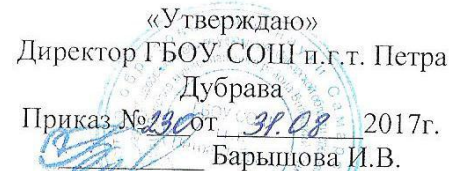 «Утверждаю»
Директор ГБОУ СОШ п.г.т. Петра
Дубрава
Приказ №230от 31.08 2017г.
Барышова И.В.